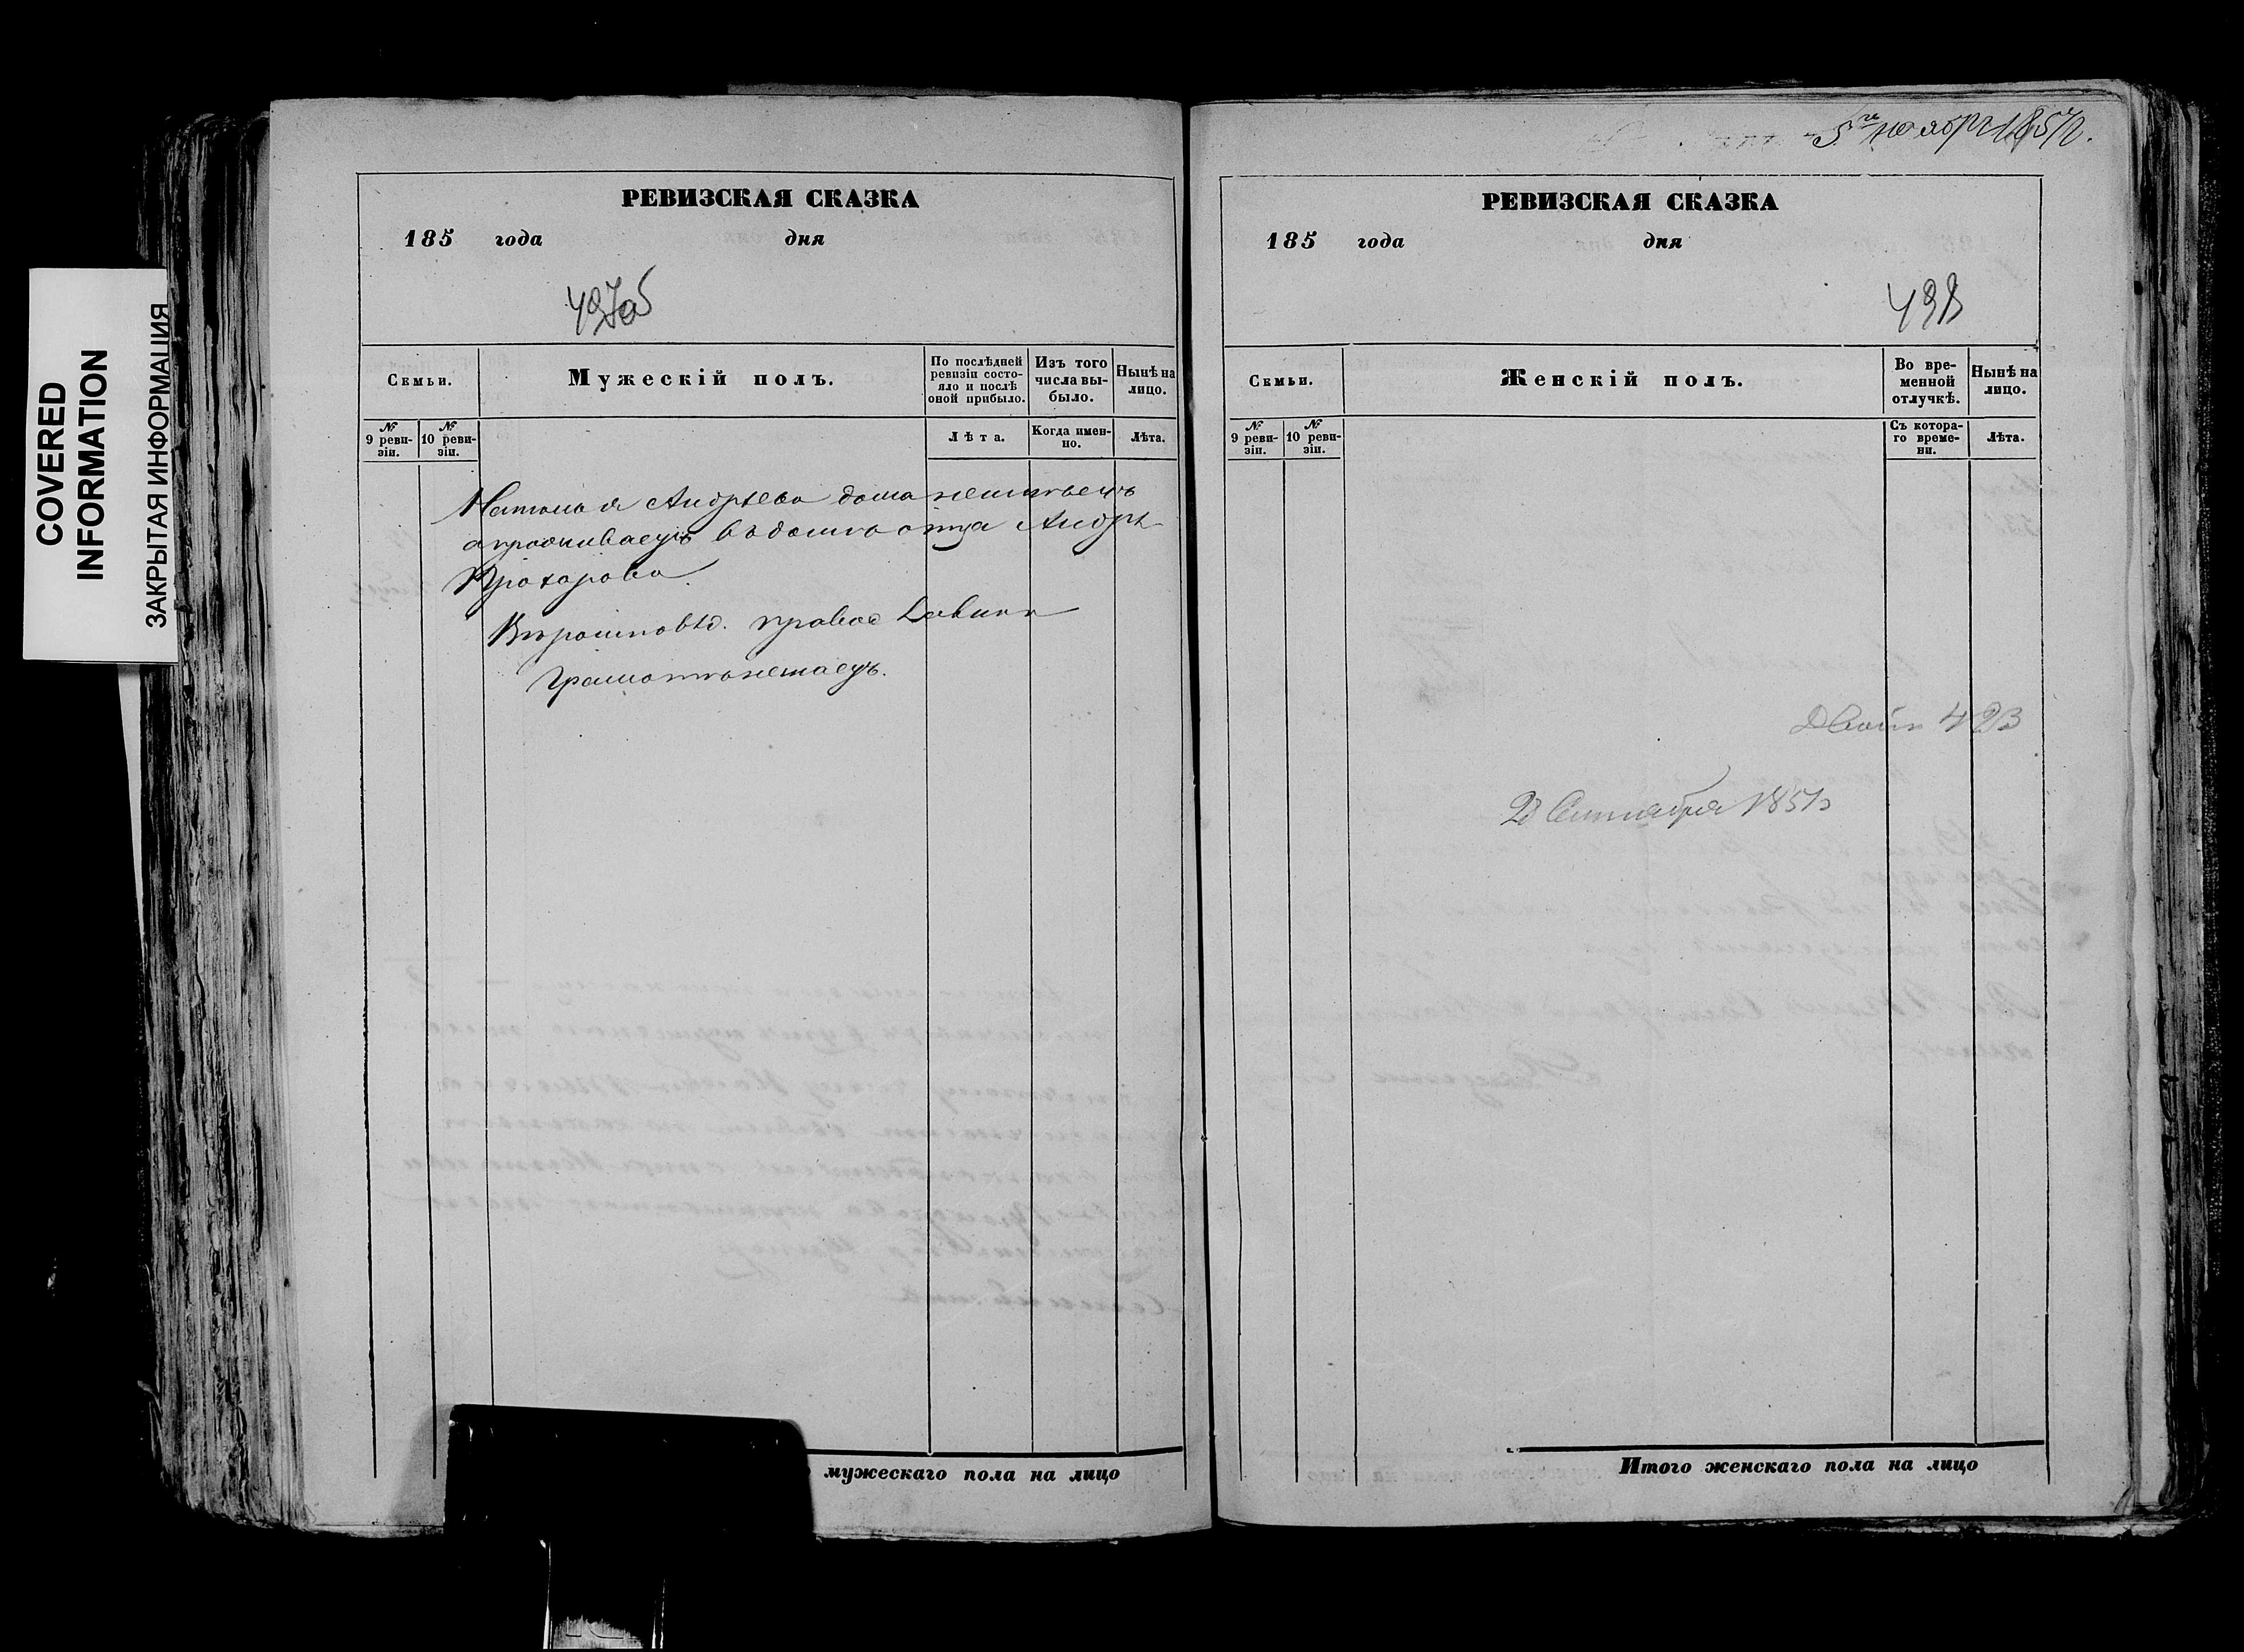 COVERED
INFORMATION
ЗАКРЫТАЯ ИНФОРМАЦИЯ
РЕВИЗСКАЯ СКАЗКА
185 года дня
Семьи.
Мужескій полъ.
По послѣдней
ревизіи состо-
яло и послѣ
оной прибыло.
Изъ того
числа вы-
было.
Нынѣ на
лицо.
№
9 реви-
зіи.
№
10 реви-
зіи.
Лѣта.
Когда имен-
но.
Лѣта.
Наталья Андреева дома неимѣетъ
а проживаетъ въ домѣ отца Андрѣ
Прохорова.
Вѣроисповѣд. правос
грамотѣ незнаетъ.
мужескаго пола на лицо
5го ноябр 1857г.
РЕВИЗСКАЯ СКАЗКА
185 года дня
498
Семьи.
Женскій полъ.
Во вре-
менной
отлучкѣ.
Нынѣ на
лицо.
№
9 реви-
зіи.
№
10 реви-
зіи.
Съ котора-
го време-
ни.
Лѣта.
Сентября 1857
Итого женскаго пола на лицо